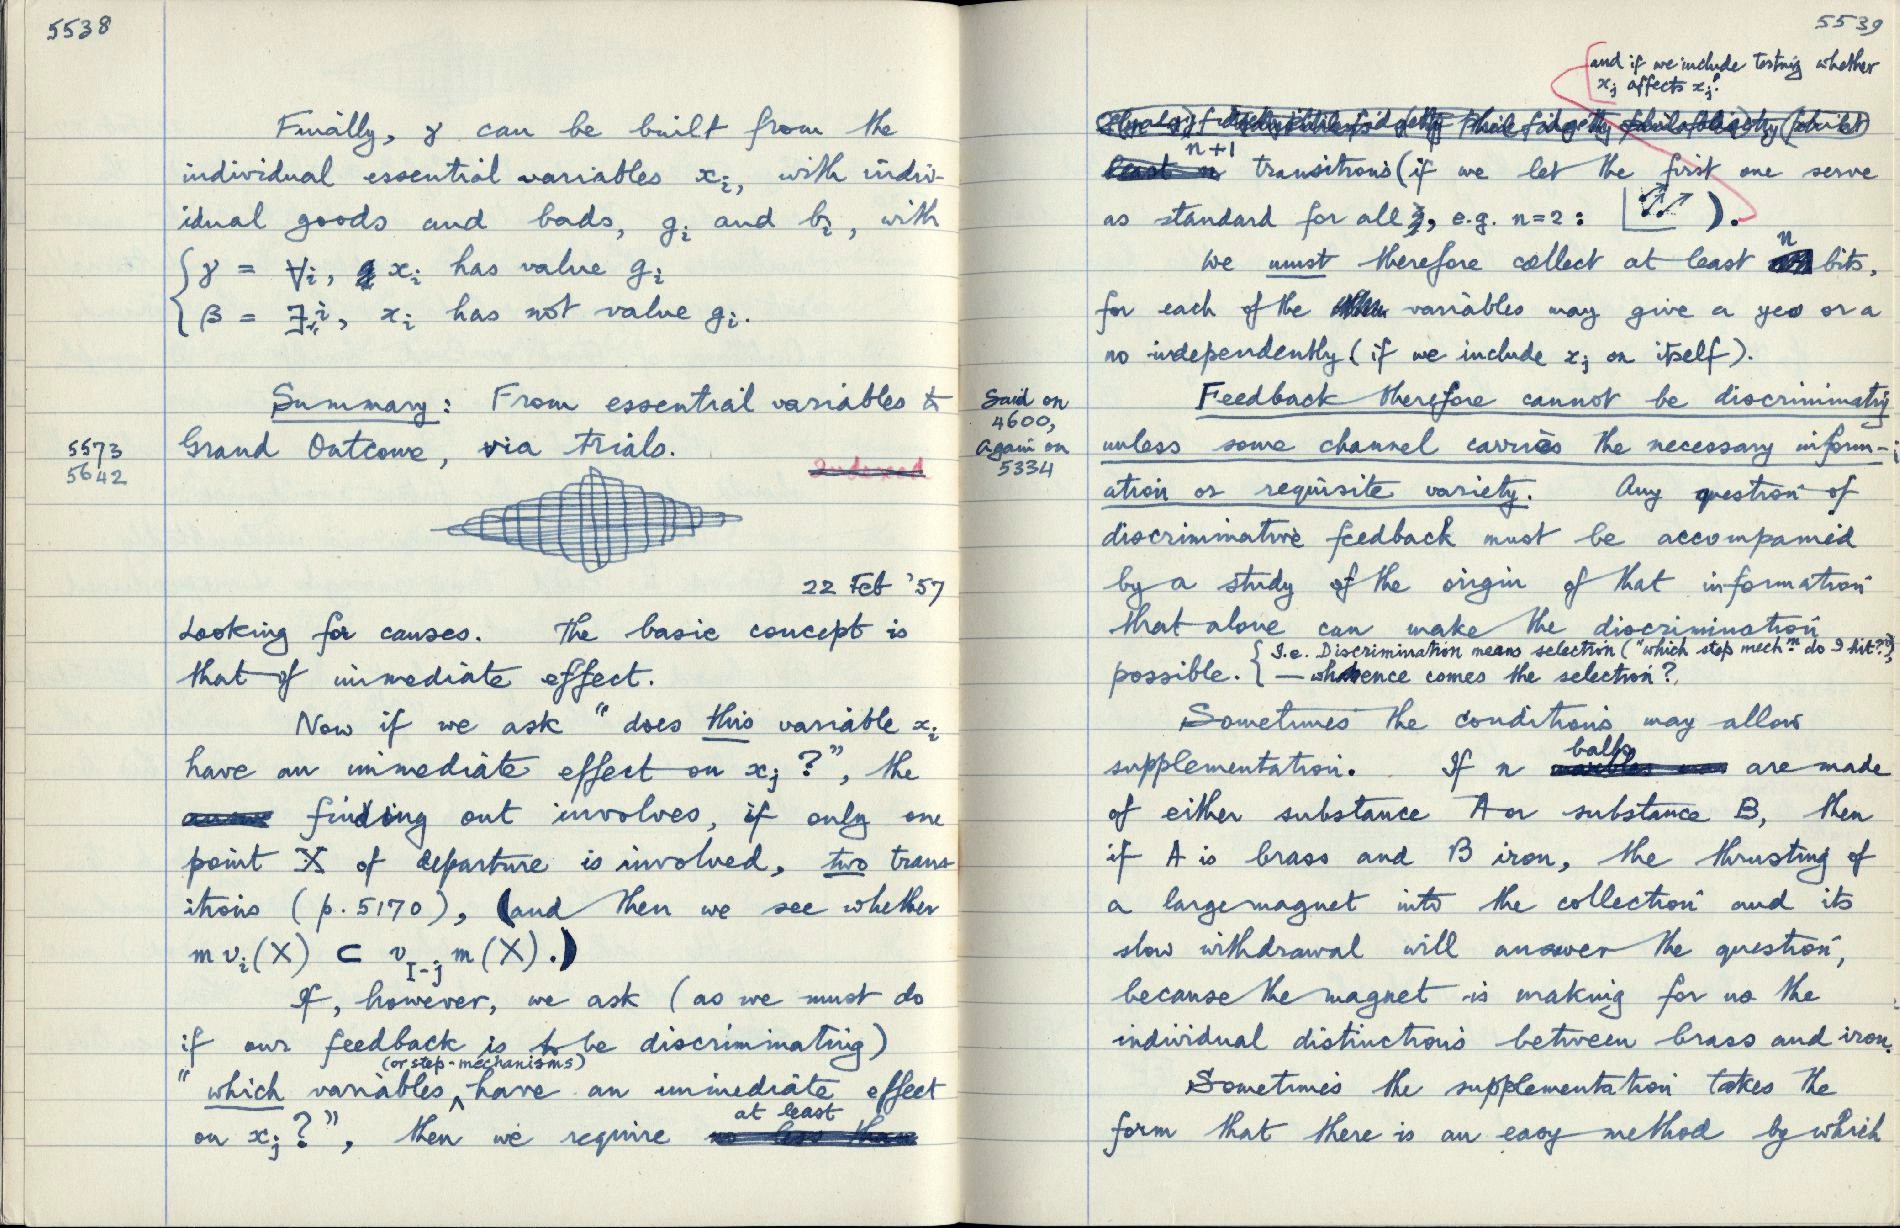 5538
Finally, γ can be built from the
individual essential variables xi, with indiv-
idual goods and bads, gi and bi, with
γ = ∀i, xi has value gi
β = ∃i, xi has not value gi.
Summary: From essential variables to
Grand Outcome, via trials.
5573
5642
Indexed
22 Feb '57
Looking for causes. The basic concept is
that of immediate effect.
Now if we ask "does this variable xi
have an immediate effect on xj?", the
finding out involves, if only one
point X of departure is involved, two trans-
itions (p. 5170), (and then we see whether
m vi(X) ⊂ vI-j m(X).)
If, however, we ask (as we must do
if our feedback is to be discriminating)
"which variables (or step-mechanisms) have an immediate effect
on xj?", then we require no less than at least
5539
and if we include testing whether
xj affects xj.
least n n+1 transitions (if we let the first one serve
as standard for all j, e.g. n=2: ).
We must therefore collect at least n bits,
for each of the variables may give a yes or a
no independently (if we include xj on itself).
Said on
4600,
Again on
5334
Feedback therefore cannot be discriminatig
unless some channel carries the necessary inform-
ation or requisite variety. Any question of
discriminative feedback must be accompanied
by a study of the origin of that information
that alone can make the discrimination
possible. { I.e. Discrimination means selection ("which step mechm do I hit?")
— whence comes the selection?
Sometimes the conditions may allow
supplementation. If n balls are made
of either substance A or substance B, then
if A is brass and B iron, the thrusting of
a large magnet into the collection and its
slow withdrawal will answer the question,
because the magnet is making for us the
individual distinctions between brass and iron.
Sometimes the supplementation takes the
form that there is an easy method by which